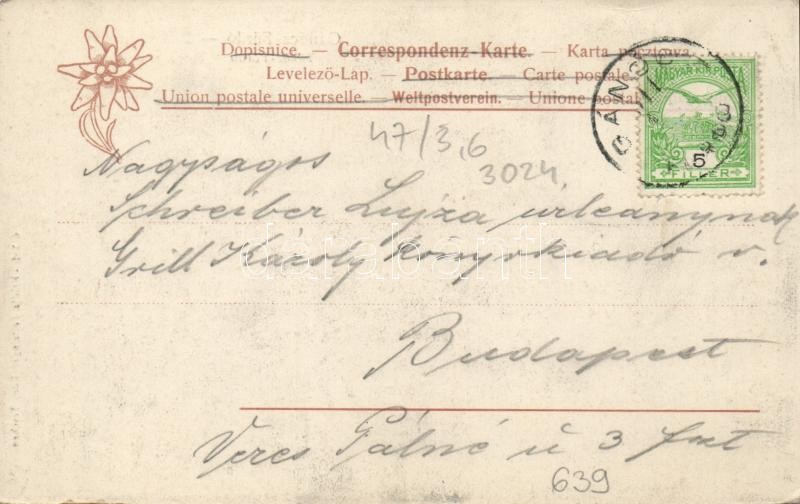 Dopisnice. — Correspondenz-Karte. — Karta pocztowa.
Levelező-Lap. — Postkarte. — Carte postale.
Union postale universelle. — Weltpostverein. — Unione postale
GÁNÓC
MAGYAR KIR. POSTA
5
FILLÉR
47/3,6
3024
Nagyságos
Schreiber Lujza úrleánynak
Grill Károly könyvkiadó v.
darabanth
Budapest
Veres Pálné u 3 fszt
639